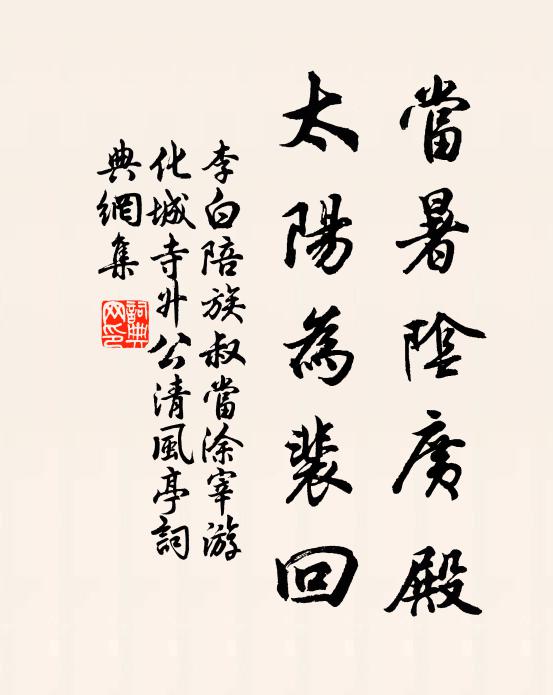 當暑陰廣殿
太陽為裴回
李白陪族叔當涂宰游
化城寺升公清風亭詞
典網集
詞典
网印